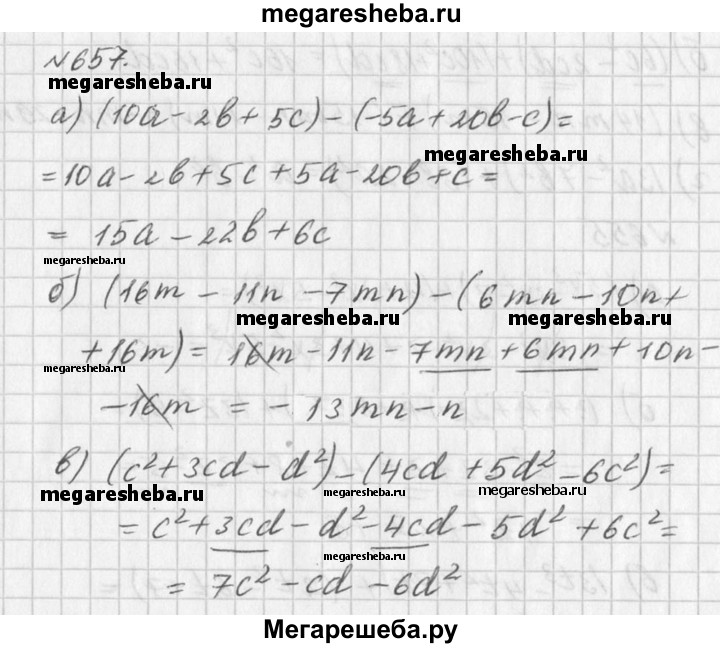 megaresheba.ru
№657.
megaresheba.ru
а) (10a - 2b + 5c) - (-5a + 20b - c) =
megaresheba.ru
= 10a - 2b + 5c + 5a - 20b + c =
= 15a - 22b + 6c
megaresheba.ru
б) (16m - 11n - 7mn) - (6mn - 10n +
megaresheba.ru megaresheba.ru
+ 16m) = 16m - 11n - 7mn + 6mn + 10n -
megaresheba.ru
- 16m = - 13mn - n
в) (c² + 3cd - d²) - (4cd + 5d² - 6c²) =
megaresheba.ru megaresheba.ru
= c² + 3cd - d² - 4cd - 5d² + 6c² =
megaresheba.ru megaresheba.ru
= 7c² - cd - 6d²
Мегарешеба.ру